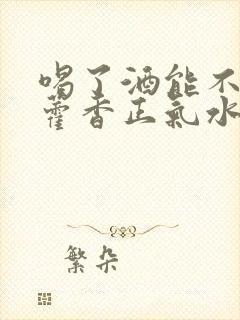 喝了酒能不
藿香正氣水
繁朵